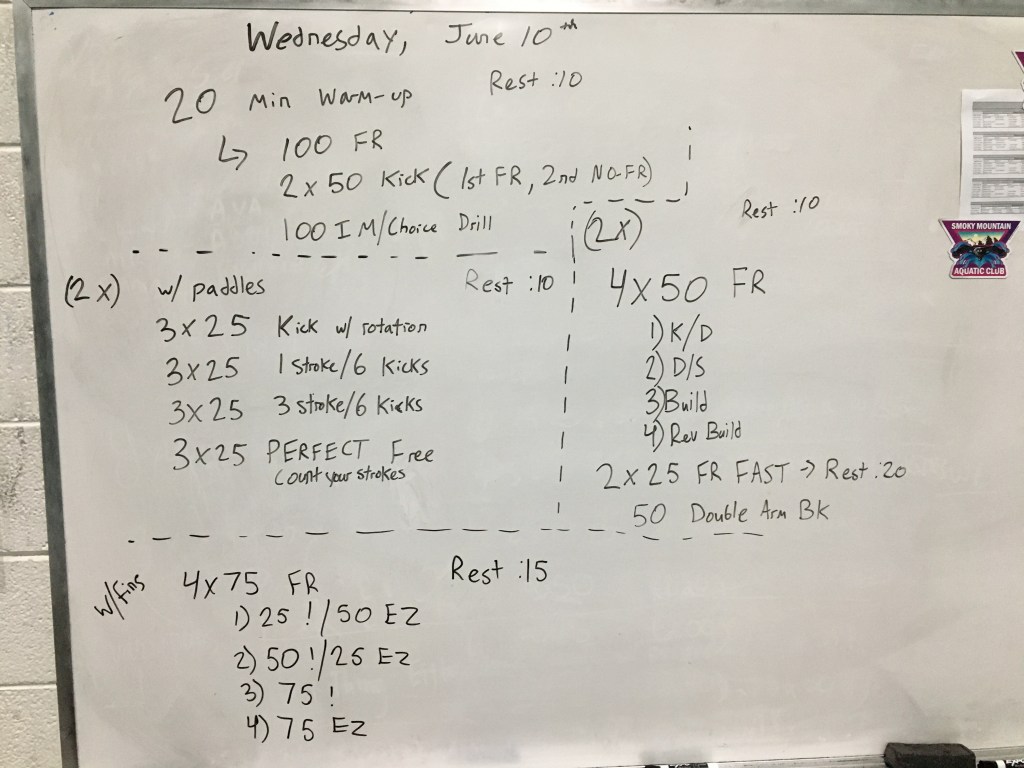 Wednesday, June 10th
20 Min Warm-up Rest :10
↳ 100 FR
2 x 50 Kick (1st FR, 2nd NO-FR)
100 IM/Choice Drill
(2x) w/ paddles Rest :10
3x25 Kick w/ rotation
3x25 1 stroke/6 Kicks
3x25 3 stroke/6 Kicks
3x25 PERFECT Free
Count your strokes
(2x) Rest :10
4x50 FR
1) K/D
2) D/S
3) Build
4) Rev Build
2x25 FR FAST → Rest :20
50 Double Arm BK
w/fins 4x75 FR Rest :15
1) 25 !/50 EZ
2) 50!/25 EZ
3) 75 !
4) 75 EZ
SMOKY MOUNTAIN
AQUATIC CLUB